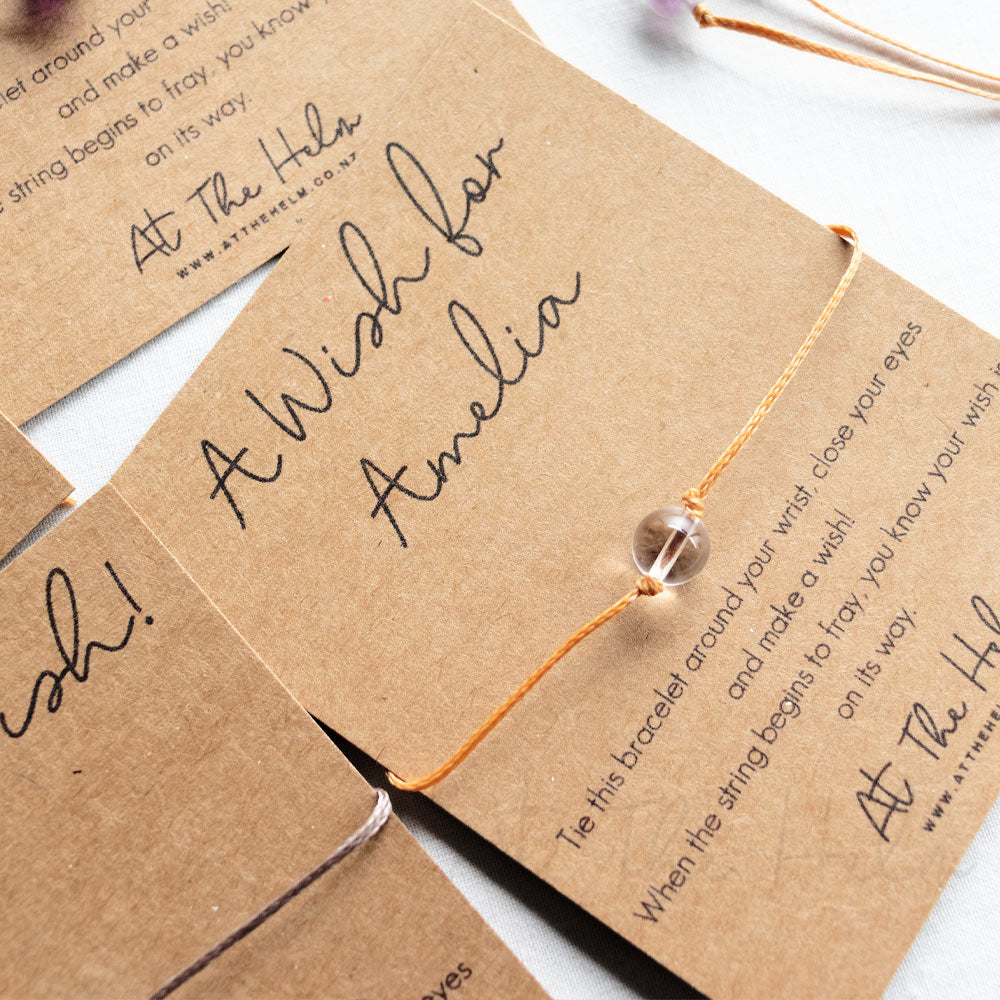 let around your
and make a wish!
string begins to fray, you know
on its way.
At The Helm
WWW.ATTHEHELM.CO.NZ
A Wish for
Amelia
Tie this bracelet around your wrist, close your eyes
and make a wish!
When the string begins to fray, you know your wish i
on its way.
At The Hel
WWW.ATTHEHE
ish!
eyes
At The Helm